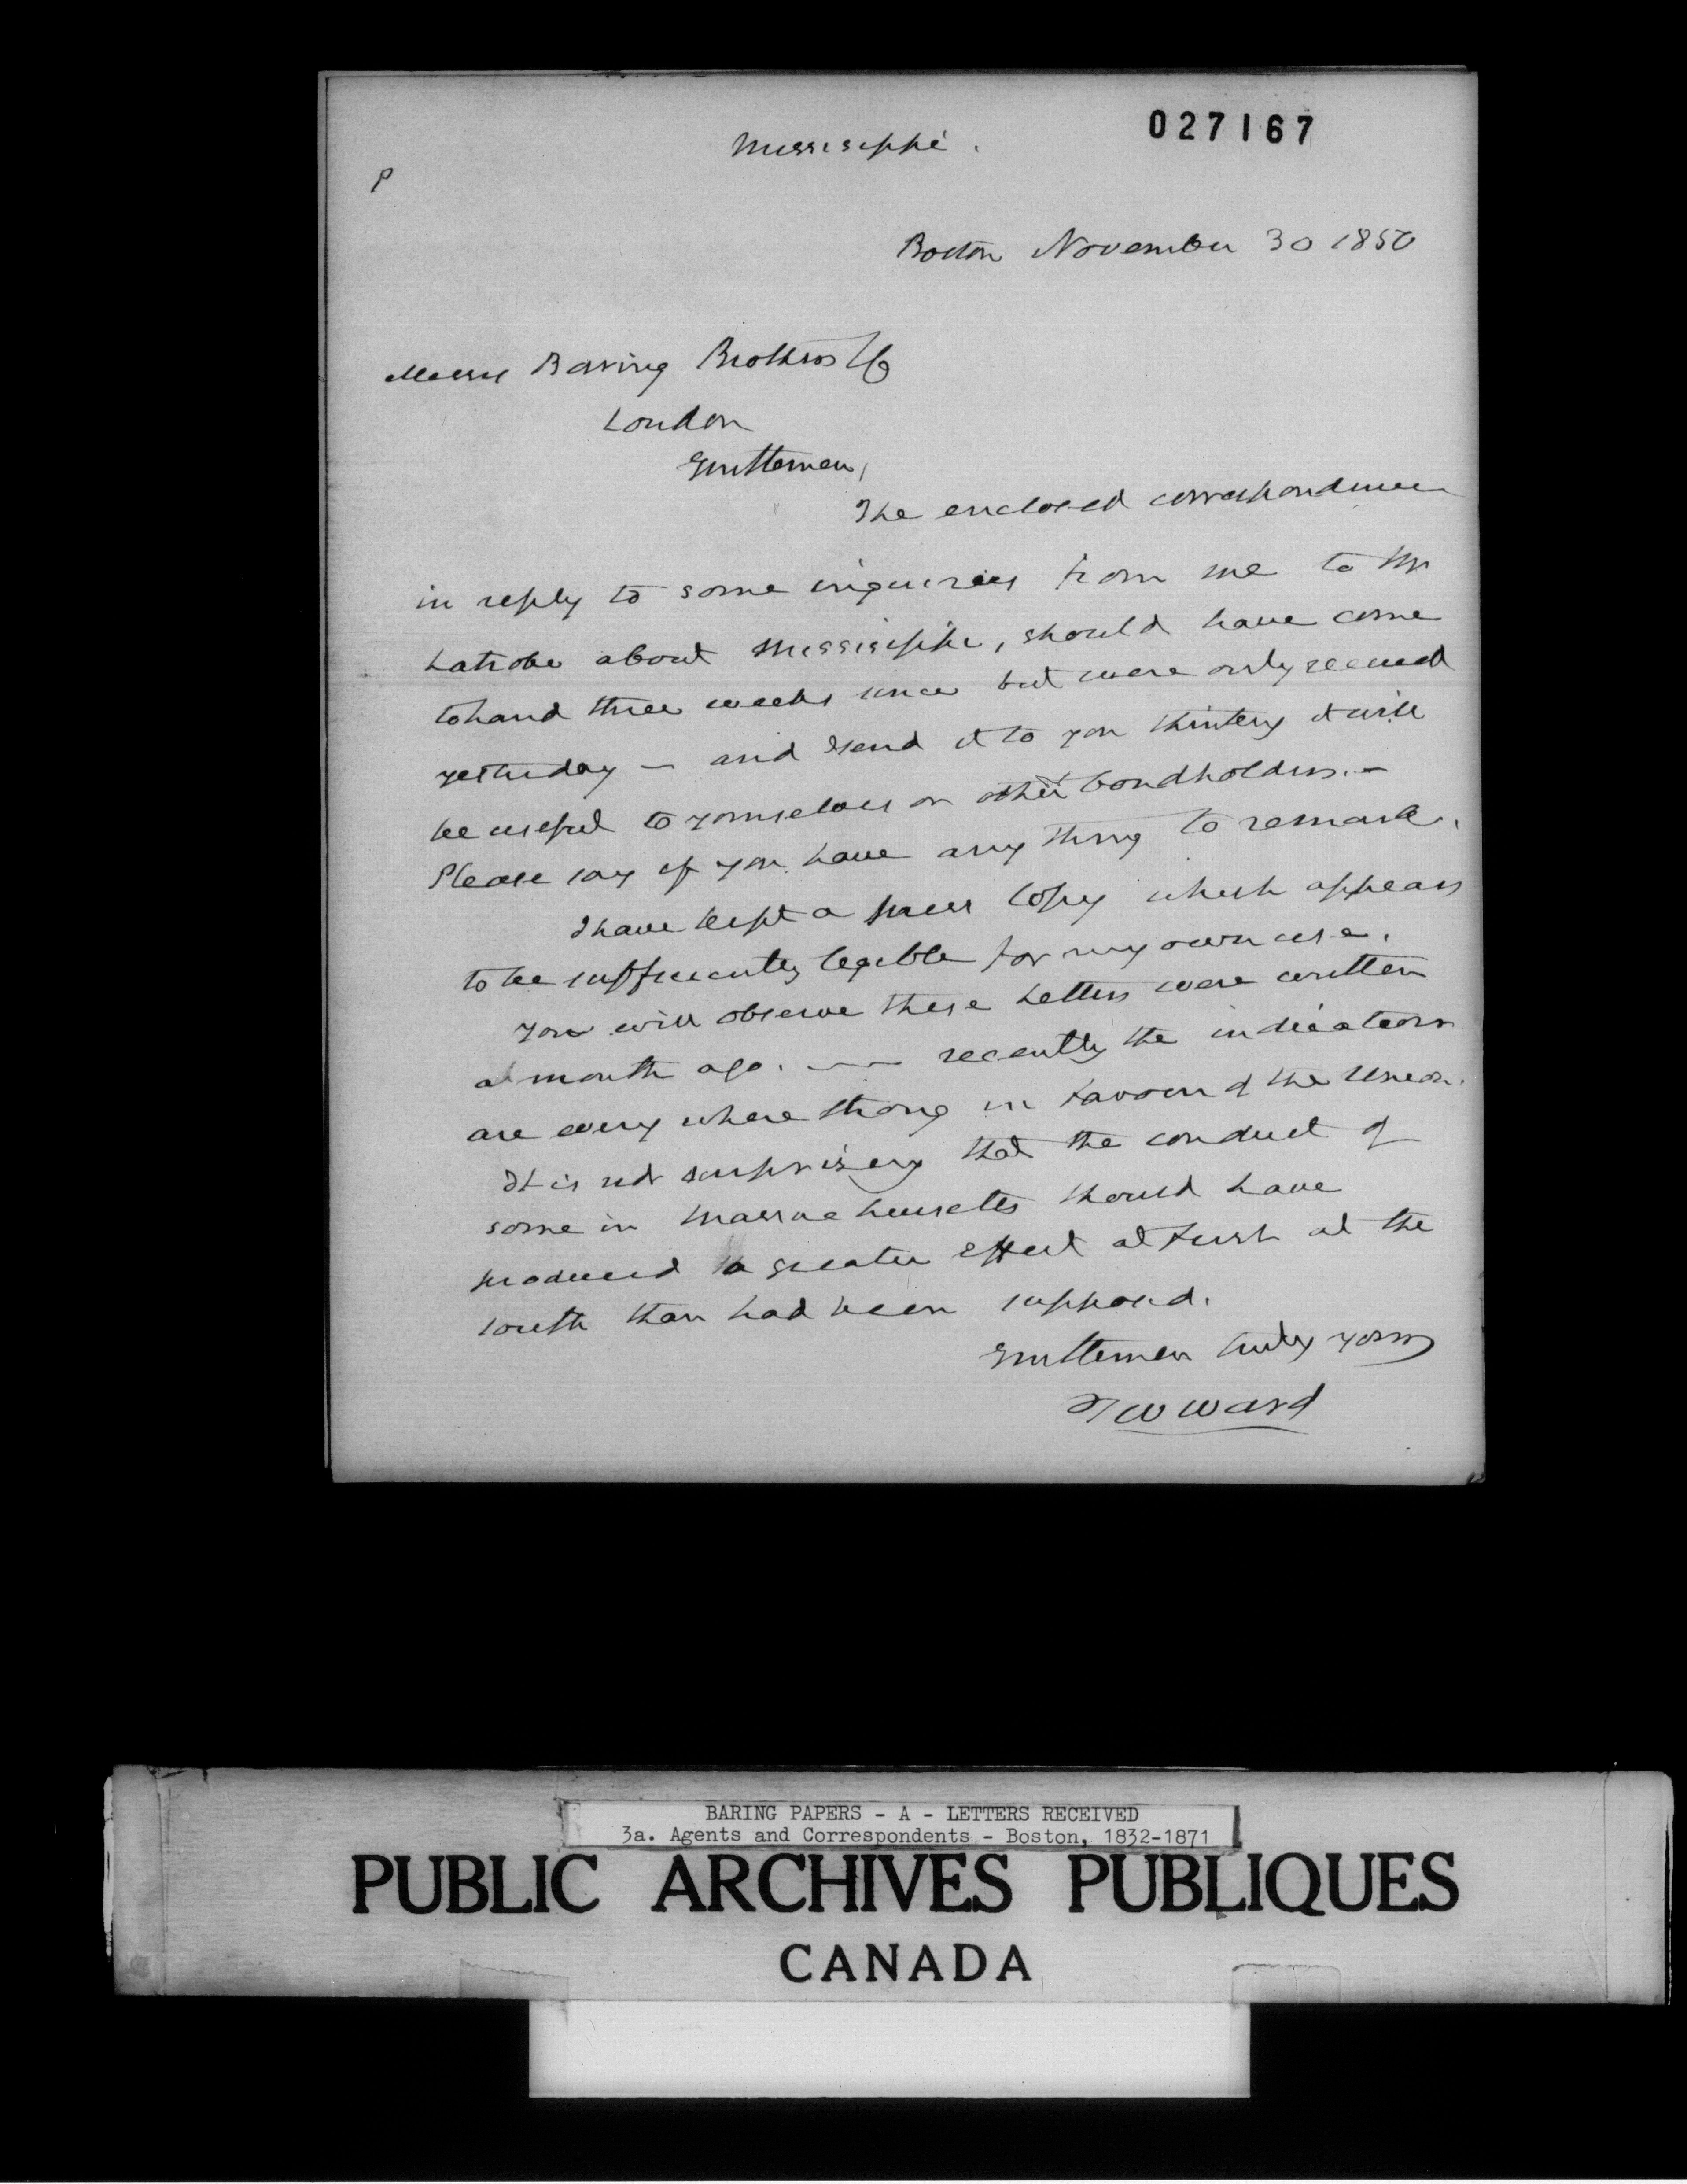 027167
Mississippi.
P
Boston November 30 1850
Messrs Baring Brothers & Co
London
Gentlemen,
The enclosed correspondence
in reply to some inquiries from me to Mr
Latrobe about Mississippi, should have come
to hand three weeks since but were only received
yesterday — and I send it to you thinking it will
be useful to yourselves or other bondholders. —
Please say if you have any thing to remark.
I have kept a press copy which appears
to be sufficiently legible for my own use.
You will observe these letters were written
a month ago. — recently the indications
are every where strong in favour of the Union.
It is not surprising that the conduct of
some in Massachusetts should have
produced a greater effect at first at the
South than had been supposed.
Gentlemen truly yours
T W Ward
BARING PAPERS - A - LETTERS RECEIVED
3a. Agents and Correspondents - Boston, 1832-1871
PUBLIC ARCHIVES PUBLIQUES
CANADA